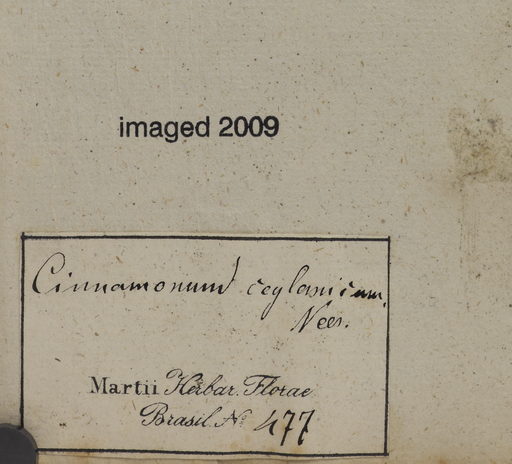 imaged 2009
Cinnamomum ceylanicum.
Nees.
Martii Herbar. Florae
Brasil. No 477